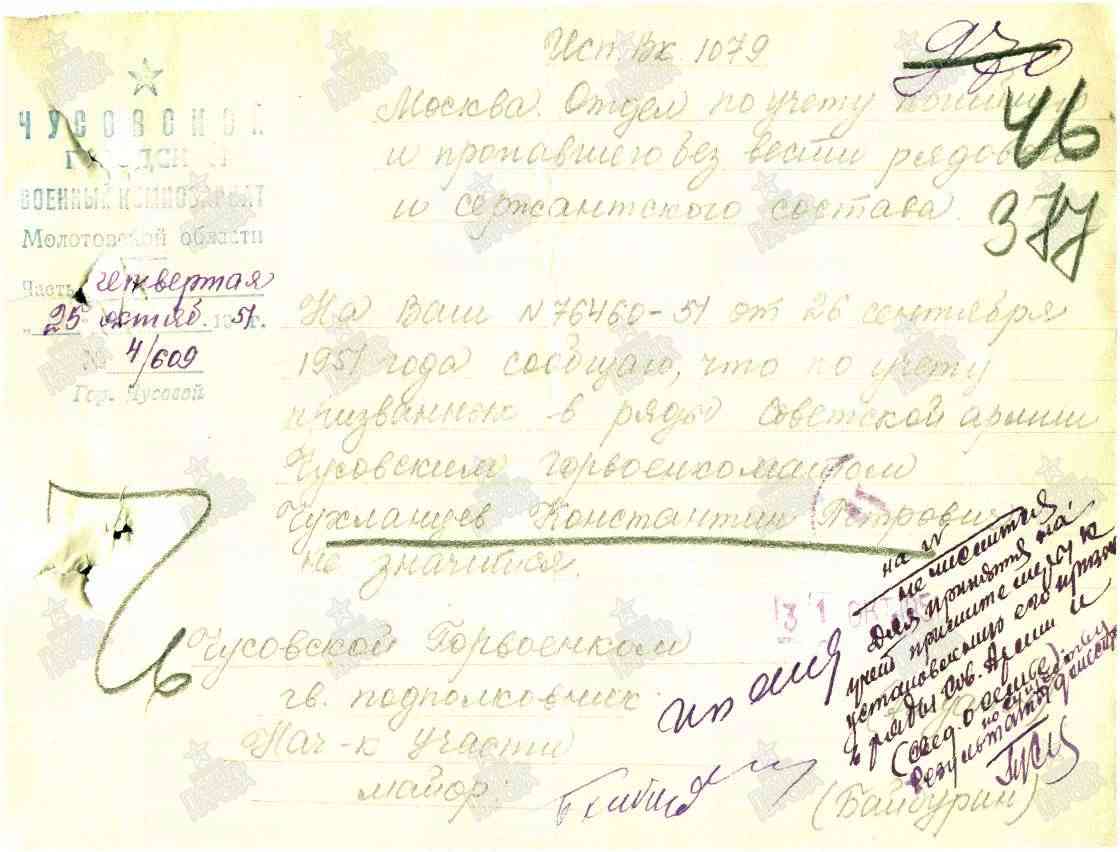 Исп. Вх. 1079
970
46
377
ЧУСОВСКОЙ
ГОРОДСКОЙ
ВОЕННЫЙ КОМИССАРИАТ
Молотовской области
Часть четвертая
"25" октяб. 1951 г.
№ 4/609
Гор. Чусовой
Москва. Отдел по учету погибшего
и пропавшего без вести рядового
и сержантского состава.
На Ваш N 76460-51 от 26 сентября
1951 года сообщаю, что по учету
призванного в ряды Советской армии
Чусовским горвоенкоматом
Чухланцев Константин Петрович
не значится.
Чусовской Горвоенком
гв. подполковник
Нач-к 4 части
майор
(Байбурин)
31 ОКТ
на
не числится
Для принятия на
учет примите меры к
установлению его призыва
в ряды Сов. Армии и
результатах